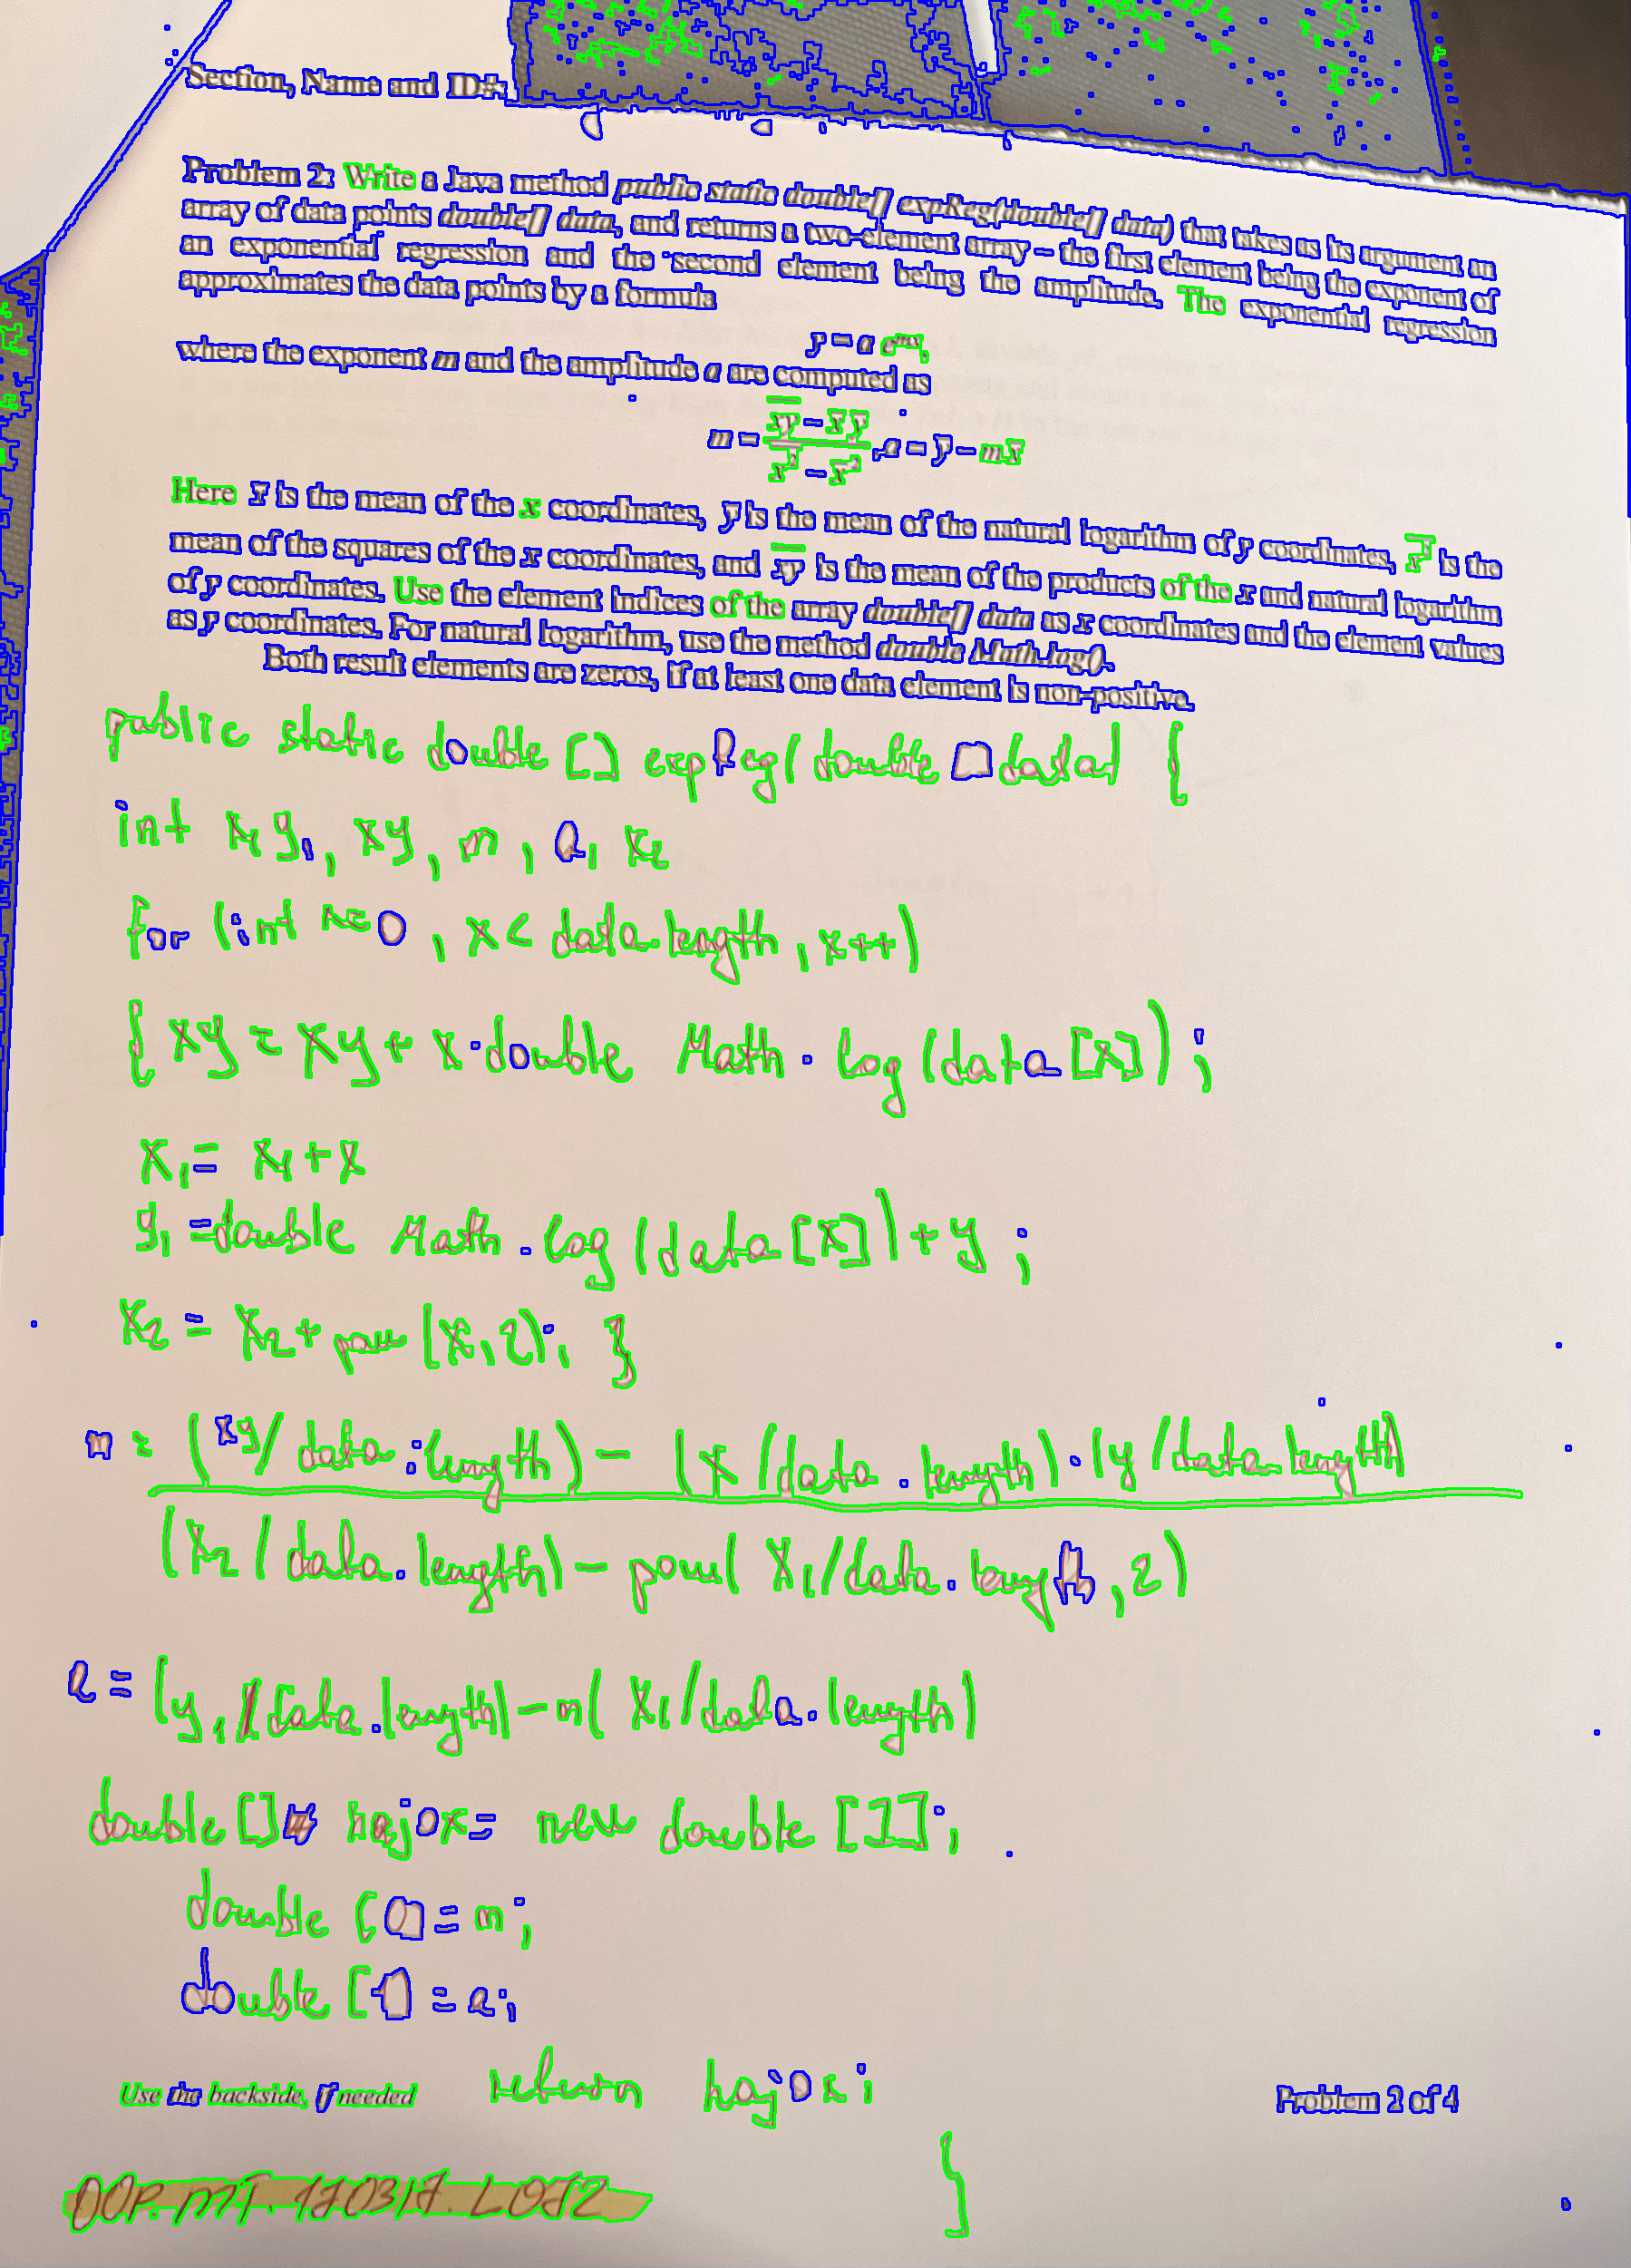 Section, Name and ID#:
Problem 2: Write a Java method public static double[] expReg(double[] data) that takes as its argument an
array of data points double[] data, and returns a two-element array – the first element being the exponent of
an exponential regression and the second element being the amplitude. The exponential regression
approximates the data points by a formula
y = a e^{mx},
where the exponent m and the amplitude a are computed as
m = \frac{\overline{xy} - \overline{x}\,\overline{y}}{\overline{x^2} - \overline{x}^2}, a = \overline{y} - m\overline{x}
Here x̅ is the mean of the x coordinates, y̅ is the mean of the natural logarithm of y coordinates, \overline{x^2} is the
mean of the squares of the x coordinates, and \overline{xy} is the mean of the products of the x and natural logarithm
of y coordinates. Use the element indices of the array double[] data as x coordinates and the element values
as y coordinates. For natural logarithm, use the method double Math.log().
Both result elements are zeros, if at least one data element is non-positive.
public static double [] expReg(double [] data) {
int x₁ y₁, xy, m, a, x₂
for (int x=0, x < data.length, x++)
{ xy = xy + x·double Math.log(data[x]);
x₁ = x₁ + x
y₁ = double Math.log(data[x]) + y;
x₂ = x₂ + pow(x,2); }
m = (xy/data.length) - (x/data.length)·(y/data.length)
(x₂/data.length) - pow(x₁/data.length,2)
a = (y₁/data.length) - m(x₁/data.length)
double [] hajox = new double [1];
double [0] = m;
double [1] = a;
return hajox;
Use the backside, if needed
Problem 2 of 4
}